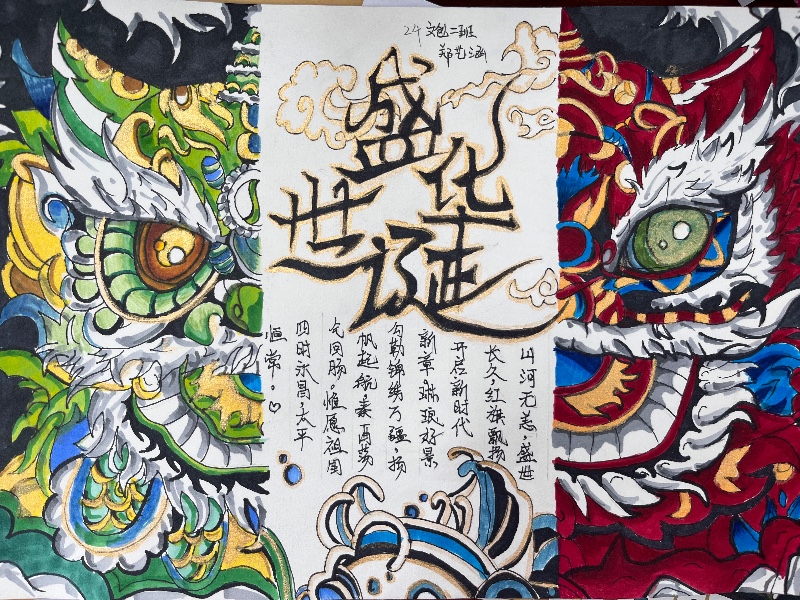 24文包二班
郑艺涵
盛世华诞
山河无恙，盛世
长久，红旗飘扬
开启新时代
新章。琳琅好景
勾勒锦绣万疆，扬
帆起航奏再荡
气回肠。惟愿祖国
四时永昌，太平
恒常。♡